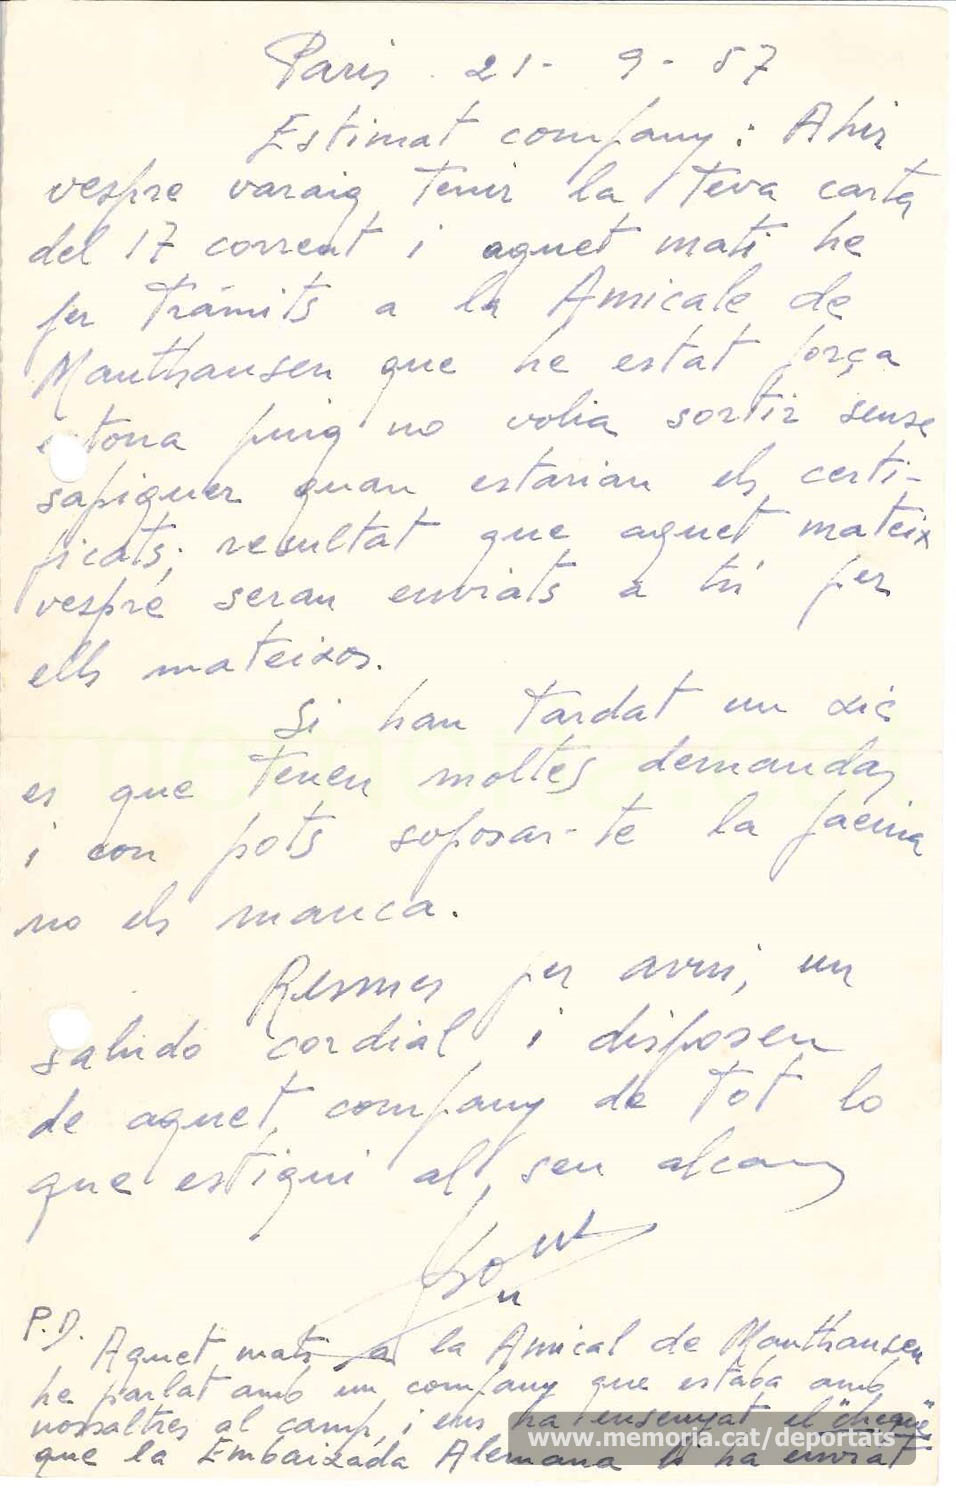 Paris 21 - 9 - 57
Estimat company: Ahir
vespre varaig tenir la teva carta
del 17 corrent i aquet mati he
fer tràmits a la Amicale de
Mauthausen que he estat força
estona puig no volia sortir sense
sapiguer quan estarian els certi-
ficats; resultat que aquet mateix
vespre seran enviats a tú per
ells mateixos.
Si han tardat un xic
es que tenen moltes demandas
i con pots soposar-te la faeina
no els manca.
Resmes per avui, un
saludo cordial i disposeu
de aquet company de tot lo
que estigui al seu alcanç
P.D. Aquet mati a la Amical de Mauthausen
he parlat amb un company que estaba amb
nosaltres al camp, i ens ha ensenyat el "cheque"
que la Embaixada Alemana li ha enviat
www.memoria.cat/deportats